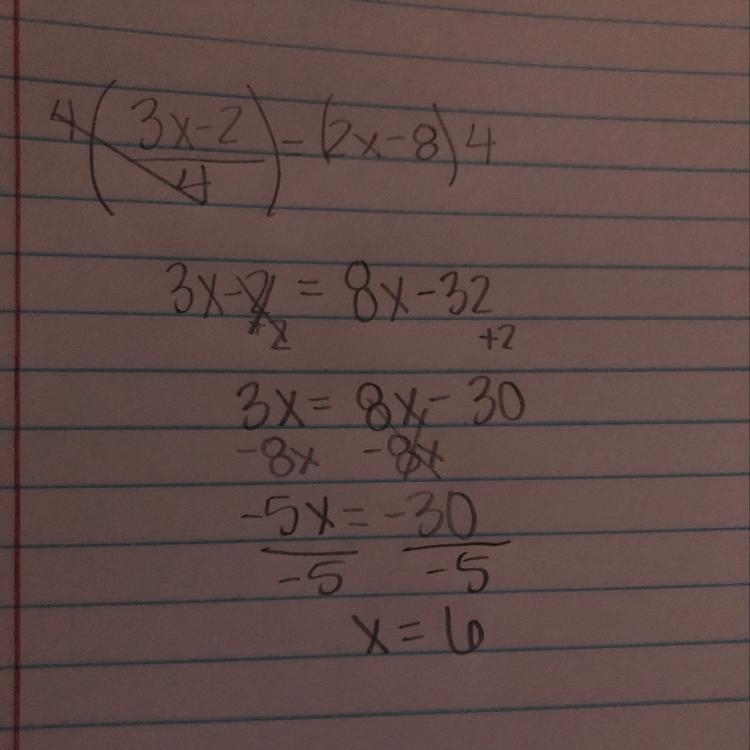 4(3x-2/4)=(2x-8)4
3x-2=8x-32
+2 +2
3x=8x-30
-8x -8x
-5x=-30
-5 -5
x=6